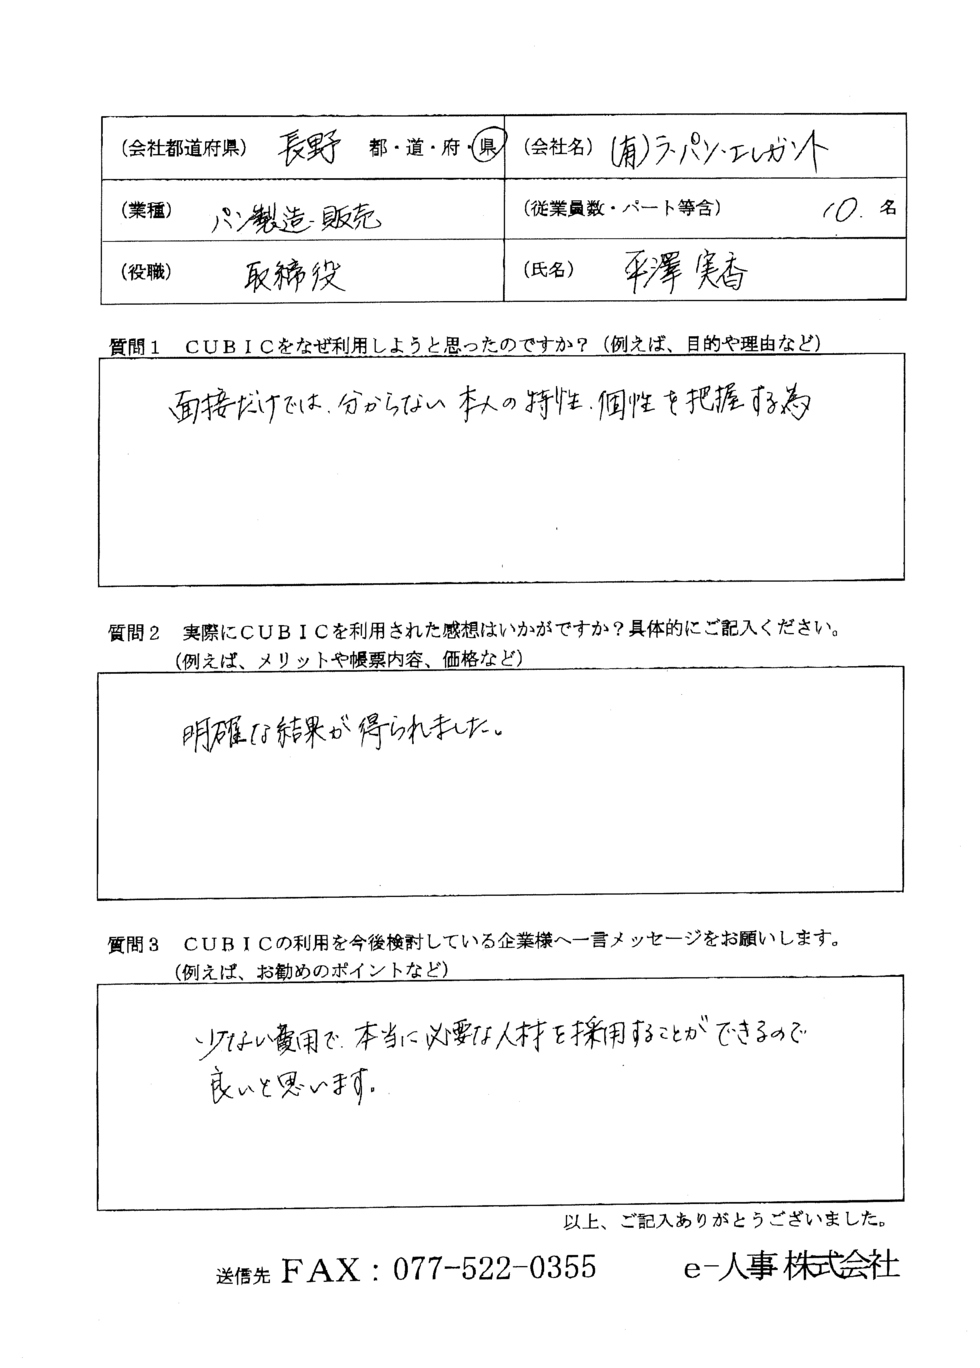 (会社都道府県) 長野 都・道・府・県 (会社名) (有)ラ・パン・エレガント
(業種) パン製造・販売 (従業員数・パート等含) 10. 名
(役職) 取締役 (氏名) 平澤 実香
質問1 CUBICをなぜ利用しようと思ったのですか?(例えば、目的や理由など)
面接だけでは、分からない 本人の特性、個性を把握する為
質問2 実際にCUBICを利用された感想はいかがですか?具体的にご記入ください。
(例えば、メリットや帳票内容、価格など)
明確な結果が得られました。
質問3 CUBICの利用を今後検討している企業様へ一言メッセージをお願いします。
(例えば、お勧めのポイントなど)
少ない費用で、本当に必要な人材を採用することができるので
良いと思います。
以上、ご記入ありがとうございました。
送信先 FAX:077-522-0355 e-人事株式会社